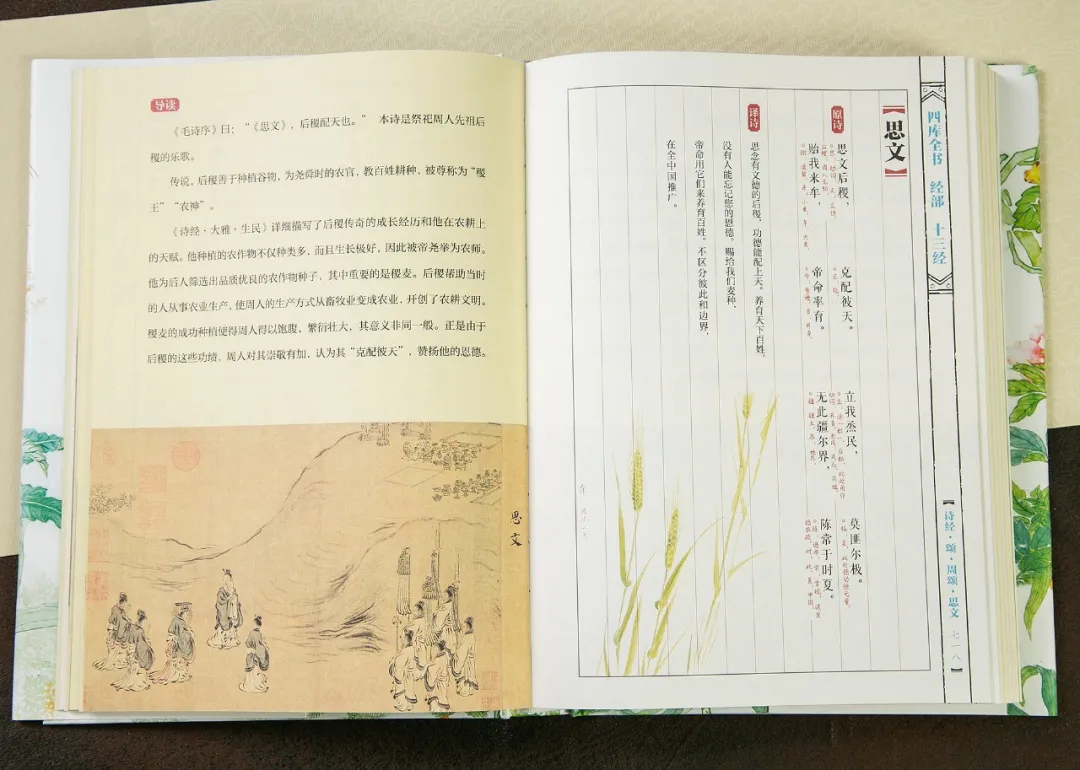 导读
《毛诗序》曰：“《思文》，后稷配天也。” 本诗是祭祀周人先祖后
稷的乐歌。
传说，后稷善于种植谷物，为尧舜时的农官，教百姓耕种，被尊称为“稷
王”“农神”。
《诗经·大雅·生民》详细描写了后稷传奇的成长经历和他在农耕上
的天赋。他种植的农作物不仅种类多，而且生长极好，因此被帝尧举为农师。
他为后人筛选出品质优良的农作物种子，其中重要的是稷麦。后稷帮助当时
的人从事农业生产，使周人的生产方式从畜牧业变成农业，开创了农耕文明。
稷麦的成功种植使得周人得以饱腹，繁衍壮大，其意义非同一般。正是由于
后稷的这些功绩，周人对其崇敬有加，认为其“克配彼天”，赞扬他的恩德。
思文
四库全书 经部 十三经
诗经·颂·周颂·思文
七一八
【思文】
原诗
思文后稷，克配彼天。立我烝民，莫匪尔极。
贻我来牟，帝命率育。无此疆尔界，陈常于时夏。
译诗
思念有文德的后稷，功德能配上天。养育天下百姓，
没有人能忘记您的恩德。赐给我们麦种，
帝命用它们来养育百姓。不区分彼此和边界，
在全中国推广。